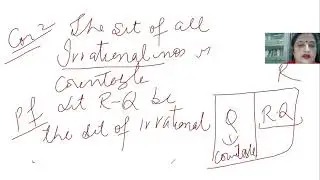 Cor 2 The set of all
Irrational nos is
countable
Pf Let R-Q be
the set of irrational
R
Q R-Q
countable